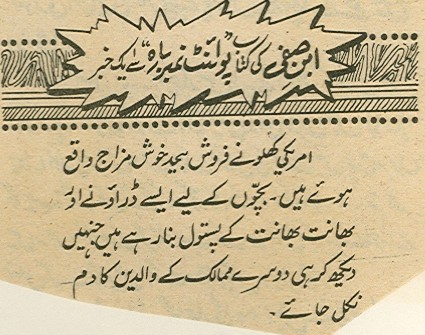 ابن صفی کی کتاب "پوائنٹ نمبر بارہ" سے ایک خبر
امریکی کھلونے فروش بیحد خوش مزاج واقع
ہوئے ہیں۔ بچّوں کے لیے ایسے ڈراؤنے اور
بھانت بھانت کے پستول بنا رہے ہیں جنہیں
دیکھ کر ہی دوسرے ممالک کے والدین کا دم
نکل جائے۔